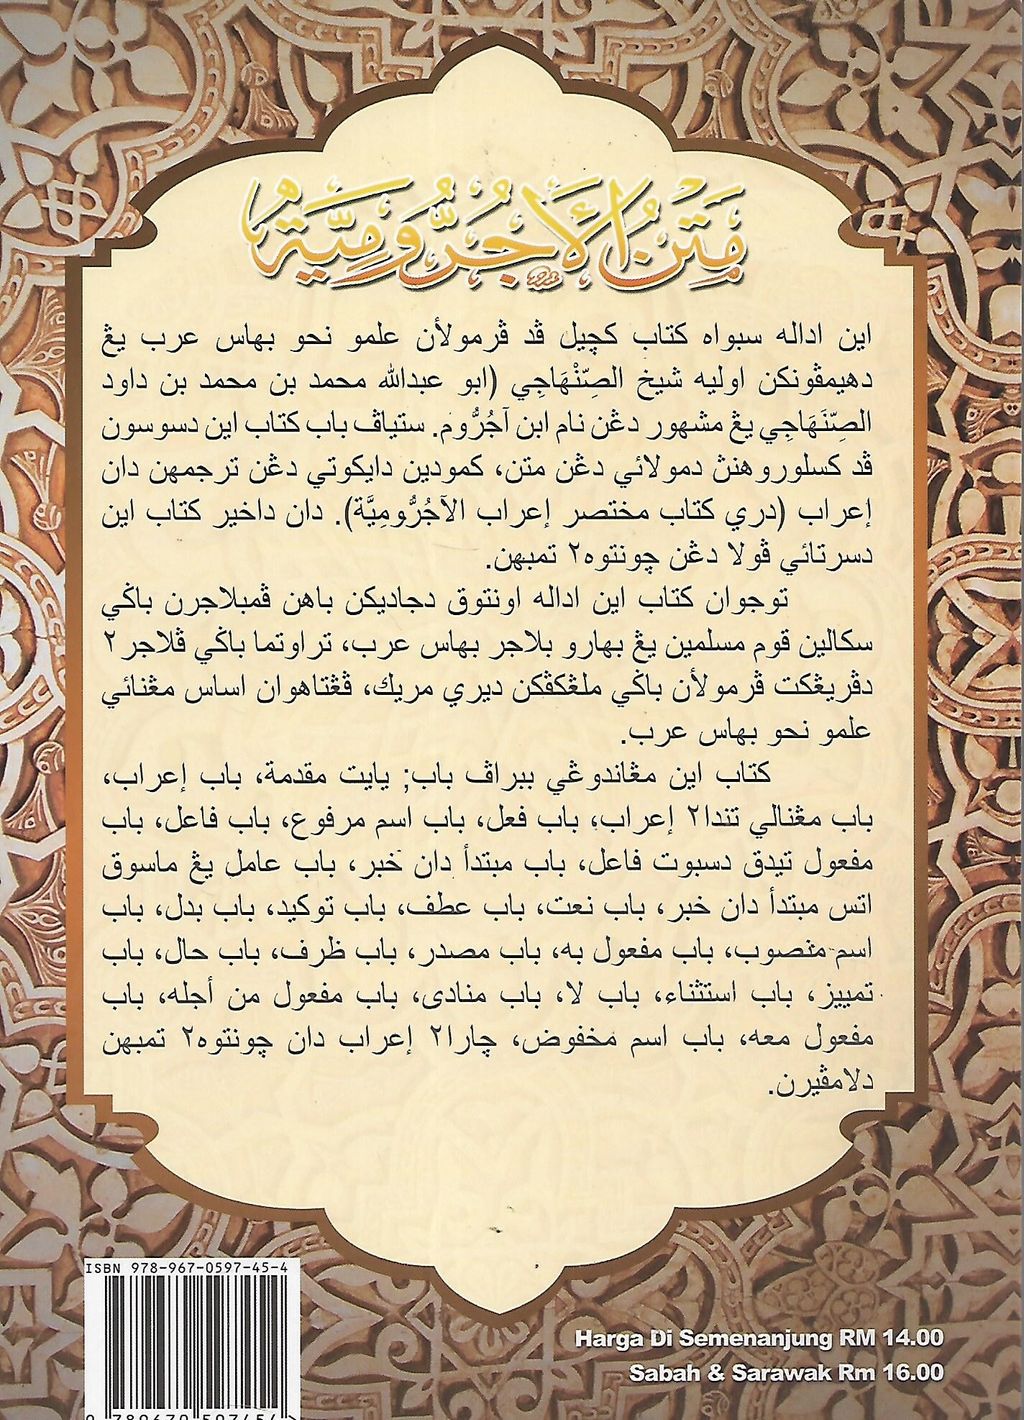 مَتَنُ الْأَجُرُّوْمِيَّةِ
اين اداله سبواه كتاب كچيل ڤد ڤرمولأن علمو نحو بهاس عرب يڠ
دهيمڤونكن اوليه شيخ الصِّنْهَاجِي (ابو عبدالله محمد بن محمد بن داود
الصِّنَهَاجِي يڠ مشهور دڠن نام ابن آجُرُّوم. ستياڤ باب كتاب اين دسوسون
ڤد كسلوروهنڽ دمولائي دڠن متن، كمودين دايكوتي دڠن ترجمهن دان
إعراب (دري كتاب مختصر إعراب الآجُرُّومِيَّة). دان داخير كتاب اين
دسرتائي ڤولا دڠن چونتوه٢ تمبهن.
توجوان كتاب اين اداله اونتوق دجاديكن باهن ڤمبلاجرن باڬي
سكالين قوم مسلمين يڠ بهارو بلاجر بهاس عرب، تراوتما باڬي ڤلاجر٢
دڤريڠكت ڤرمولأن باڬي ملڠكڤكن ديري مريك، ڤڠتاهوان اساس مڠنائي
علمو نحو بهاس عرب.
كتاب اين مڠاندوڠي ببراڤ باب; يايت مقدمة، باب إعراب،
باب مڠنالي تندا٢ إعراب، باب فعل، باب اسم مرفوع، باب فاعل، باب
مفعول تيدق دسبوت فاعل، باب مبتدأ دان خبر، باب عامل يڠ ماسوق
اتس مبتدأ دان خبر، باب نعت، باب عطف، باب توكيد، باب بدل، باب
اسم منصوب، باب مفعول به، باب مصدر، باب ظرف، باب حال، باب
تمييز، باب استثناء، باب لا، باب منادى، باب مفعول من أجله، باب
مفعول معه، باب اسم مخفوض، چارا٢ إعراب دان چونتوه٢ تمبهن
دلامڤيرن.
ISBN 978-967-0597-45-4
9 789670 597454 >
Harga Di Semenanjung RM 14.00
Sabah & Sarawak Rm 16.00